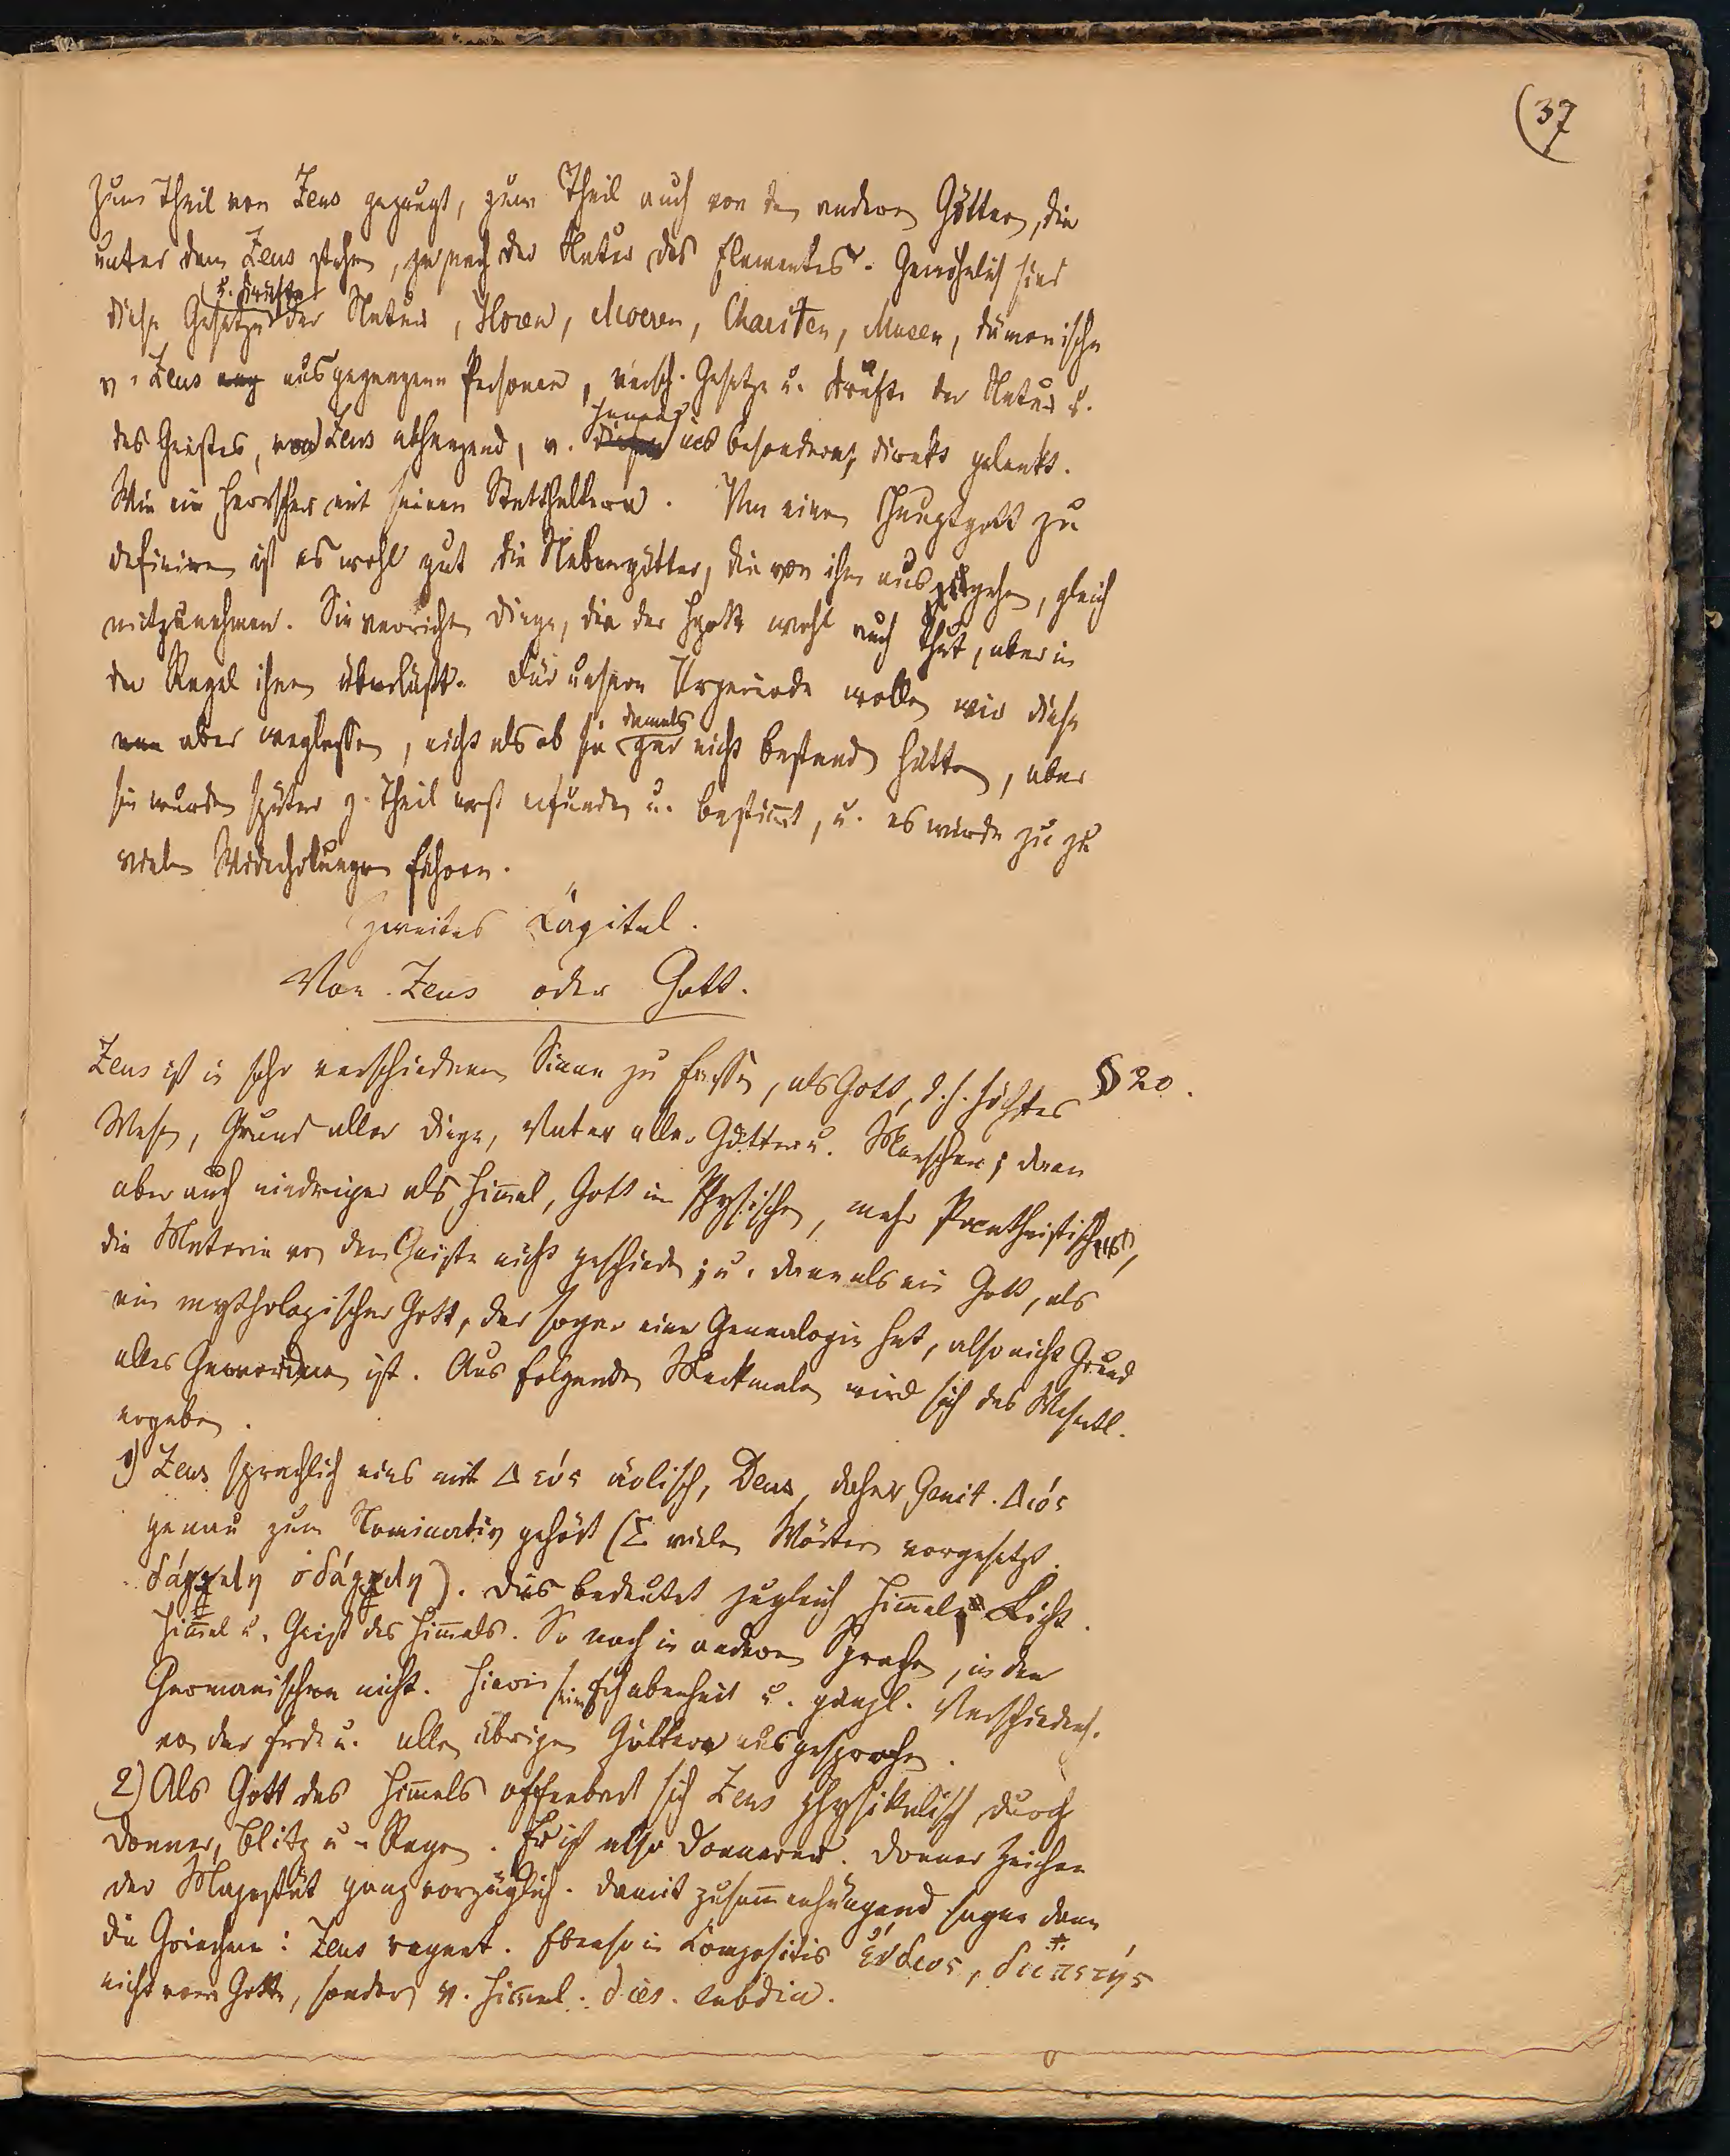 (37
zum Theil von Zeus gezeugt, zum Theil auch von den anderen Göttern, die
unter dem Zeus stehen, je nach der Natur des Elementes. Gewöhnlich sind
u. Kräfte
diese Gesetze der Natur, Horen, Moeren, Chariten, Musen, dämonische
v. Zeus ausgegangene Personen, versch. Gesetze u. Kräfte der Natur u.
des Geistes, von Zeus abhangend, v. ins besondere, direkt gelenkt.
Wie ein Herrscher mit seinen Statthaltern. Um einen Hauptgott zu
definiren ist es wohl gut die Nebengötter, die von ihm ausgehen, gleich
mitzunehmen. Sie verrichten Dinge, die der Hgott wohl auch thut, aber in
der Regel ihnen überläßt. Für unsere Urperiode wollen wir diese
damals
nun aber weglassen, nicht als ob sie gar nicht bestanden hätten, aber
sie wurden später z. Theil erst erfunden u. bestimmt, u. es würde zu zu
vielen Wiederholungen führen.
Zweites Capitel.
Von Zeus oder Gott.
Zeus ist in sehr verschiedenem Sinne zu fassen, als Gott, d. h. höchstes § 20.
Wesen, Grund aller Dinge, Vater aller Götter u. Menschen; dann
aber auch niedriger als Himmel, Gott im Physischen, mehr Pantheistisches,
die Materie von dem Geiste nicht geschieden; u. dann als ein Gott, als
ein mythologischer Gott, der sogar eine Genealogie hat, also nicht Grund
alles Gewordenen ist. Aus folgenden Merkmalen wird sich das Wesentl.
ergeben.
1) Zeus sprachlich eins mit Δεύς äolisch, Deus, daher Genit. Διός
genau zum Nominativ gehört (Σ vielen Wörtern vorgesetzt.
). Dies bedeutet zugleich Himmel, Licht.
Himmel u. Geist des Himmels. So noch in anderen Sprachen, in den
Germanischen nicht. Hierin seine Erhabenheit u. gänzl. Verschiedenh.
von der Erde u. allen übrigen Göttern ausgesprochen.
2) Als Gott des Himmels offenbart sich Zeus physikalisch durch
Donner, Blitz u. Regen. Er ist also Donnerer. Donner Zeichen
der Majestät ganz vorzüglich. Damit zusammenhängend sagen dann
die Griechen: Zeus regnet. Ebenso in Compositis ἔνδιος, διιπετής
nicht vom Gotte, sondern v. Himmel. dies. subdiu.